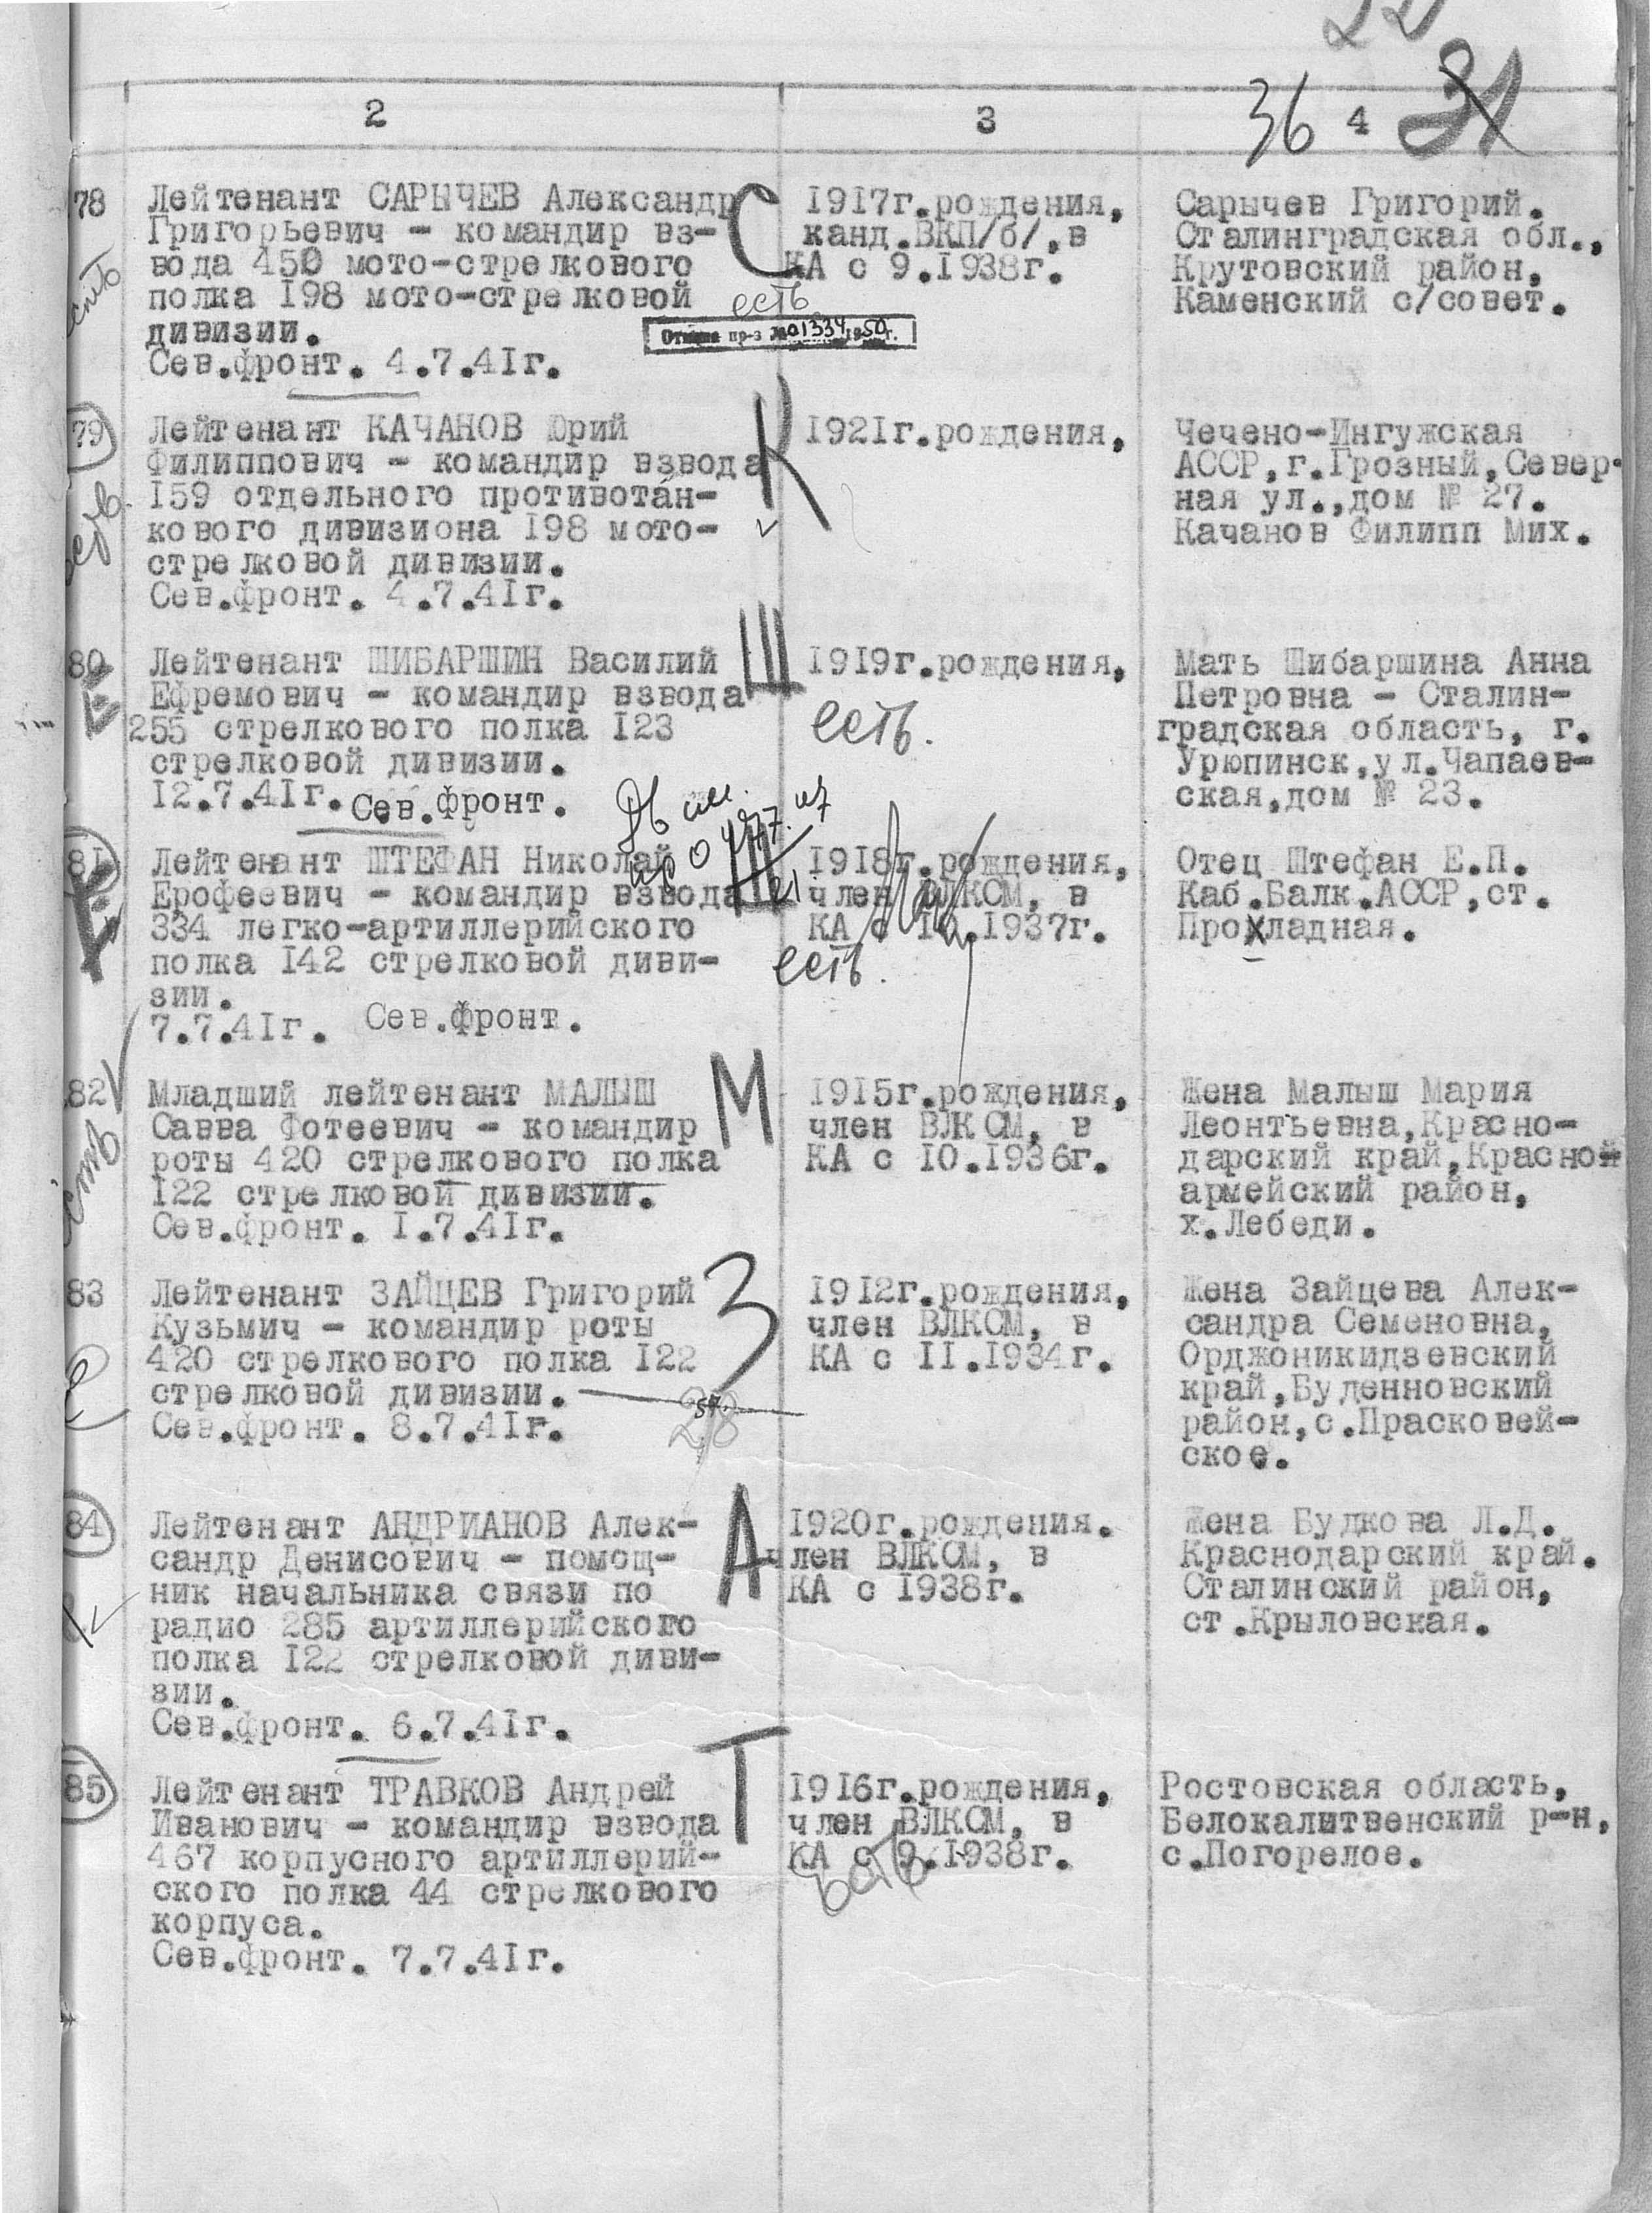 22
36 31
2 3 4
78
Лейтенант САРЫЧЕВ Александр
Григорьевич - командир вз-
вода 450 мото-стрелкового
полка 198 мото-стрелковой
дивизии.
Сев.фронт. 4.7.41г.
С
есть
пр-з №01334 1950г.
1917г.рождения,
канд.ВКП/б/,в
КА с 9.1938г.
Сарычев Григорий.
Сталинградская обл.,
Крутовский район,
Каменский с/совет.
79
Лейтенант КАЧАНОВ Юрий
Филиппович - командир взвода
159 отдельного противотан-
кового дивизиона 198 мото-
стрелковой дивизии.
Сев.фронт. 4.7.41г.
К
1921г.рождения,
Чечено-Ингужская
АССР,г.Грозный,Север-
ная ул.,дом № 27.
Качанов Филипп Мих.
80
Лейтенант ШИБАРШИН Василий
Ефремович - командир взвода
255 стрелкового полка 123
стрелковой дивизии.
12.7.41г. Сев.фронт.
Ш
1919г.рождения,
есть.
Мать Шибаршина Анна
Петровна - Сталин-
градская область, г.
Урюпинск,ул.Чапаев-
ская,дом № 23.
81
Лейтенант ШТЕФАН Николай
Ерофеевич - командир взвода
334 легко-артиллерийского
полка 142 стрелковой диви-
зии.
7.7.41г. Сев.фронт.
Ш
1918г.рождения,
член ВЛКСМ, в
КА с 10.1937г.
есть.
Отец Штефан Е.П.
Каб.Балк.АССР,ст.
Прохладная.
82
Младший лейтенант МАЛЫШ
Савва Фотеевич - командир
роты 420 стрелкового полка
122 стрелковой дивизии.
Сев.фронт. 1.7.41г.
М
1915г.рождения,
член ВЛКСМ, в
КА с 10.1936г.
Жена Малыш Мария
Леонтьевна,Красно-
дарский край,Красно-
армейский район,
х.Лебеди.
83
Лейтенант ЗАЙЦЕВ Григорий
Кузьмич - командир роты
420 стрелкового полка 122
стрелковой дивизии.
Сев.фронт. 8.7.41г.
З
28
1912г.рождения,
член ВЛКСМ, в
КА с 11.1934г.
Жена Зайцева Алек-
сандра Семеновна,
Орджоникидзевский
край,Буденновский
район,с.Прасковей-
ское.
84
Лейтенант АНДРИАНОВ Алек-
сандр Денисович - помощ-
ник начальника связи по
радио 285 артиллерийского
полка 122 стрелковой диви-
зии.
Сев.фронт. 6.7.41г.
А
1920г.рождения.
член ВЛКСМ, в
КА с 1938г.
Жена Будкова Л.Д.
Краснодарский край.
Сталинский район,
ст.Крыловская.
85
Лейтенант ТРАВКОВ Андрей
Иванович - командир взвода
467 корпусного артиллерий-
ского полка 44 стрелкового
корпуса.
Сев.фронт. 7.7.41г.
Т
1916г.рождения,
член ВЛКСМ, в
КА с 9.1938г.
есть
Ростовская область,
Белокалитвенский р-н,
с.Погорелое.